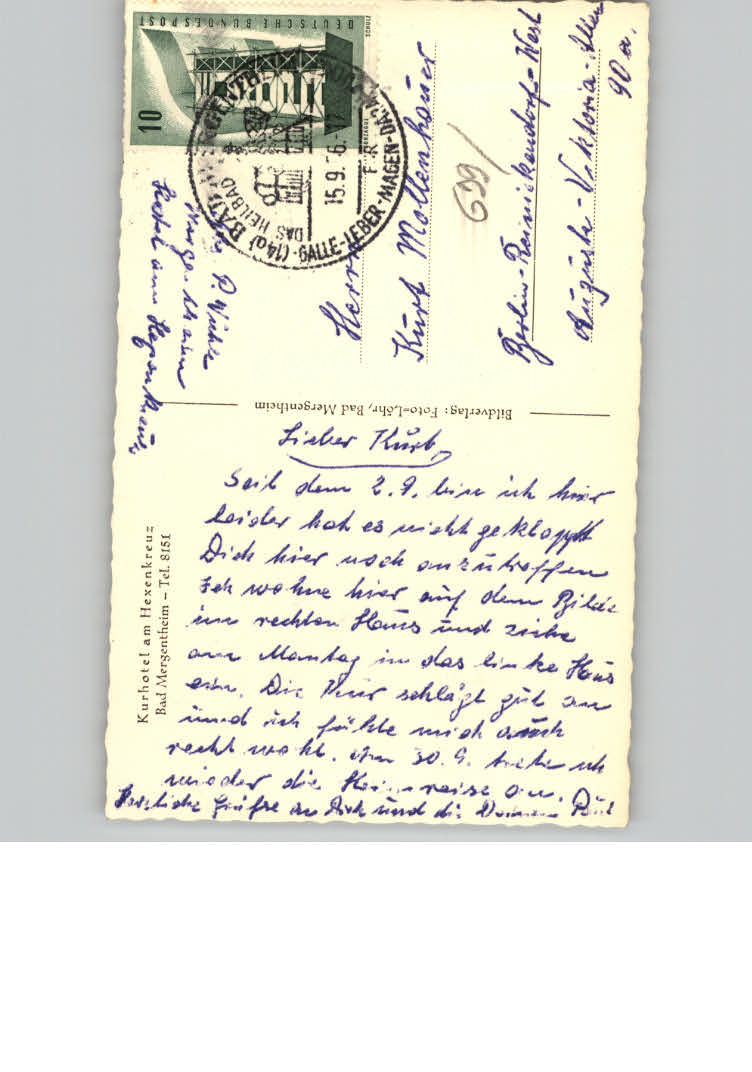 Kurhotel am Hexenkreuz
Bad Mergentheim – Tel. 8151
Lieber Kurt,
Seit dem 2.9. bin ich hier
leider hat es nicht geklappt
Dich hier noch anzutreffen
Ich wohne hier auf dem Bilde
im rechten Haus und ziehe
am Montag in das linke Haus
ein. Die Kur schlägt gut an
und ich fühle mich auch
recht wohl. Am 30.9. trete ich
wieder die Heimreise an.
Herzliche Grüße an Dich und die Deinen Paul
Bildverlag: Foto-Löhr, Bad Mergentheim
Mergentheim
Hotel am Hexenkreuz
DEUTSCHE BUNDESPOST
10
(14a) BAD MERGENTHEIM
DAS HEILBAD
15.9.56
FÜR
GALLE-LEBER-MAGEN-DARM
Herrn
Kurt Mollenhauer
Berlin-Reinickendorf-West
Auguste-Viktoria-Allee
90 a.
699/